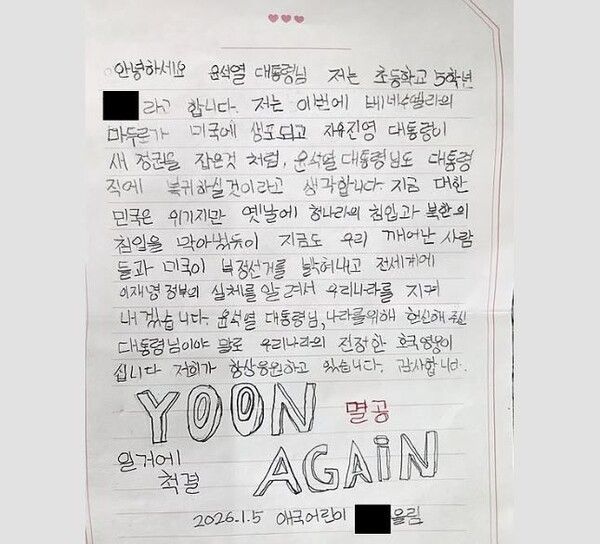 안녕하세요 윤석열 대통령님 저는 초등학교 5학년
라고 합니다. 저는 이번에 베네수엘라의
마두로가 미국에 생포되고 자유진영 대통령이
새 정권을 잡은것 처럼, 윤석열 대통령님도 대통령
직에 복귀하실것이라고 생각합니다. 지금 대한
민국은 위기지만 옛날에 청나라의 침입과 북한의
침입을 막아냈듯이 지금도 우리 깨어난 사람
들과 미국이 부정선거를 밝혀내고 전세계에
이재명 정부의 실체를 알려서 우리나라를 지켜
내겠습니다. 윤석열 대통령님, 나라를위해 헌신해 주신
대통령님이야 말로 우리나라의 진정한 호국영웅이
십니다 저희가 항상응원하고 있습니다. 감사합니다.
YOON 멸공
일거에 척결 AGAiN
2026.1.5 애국어린이 올림